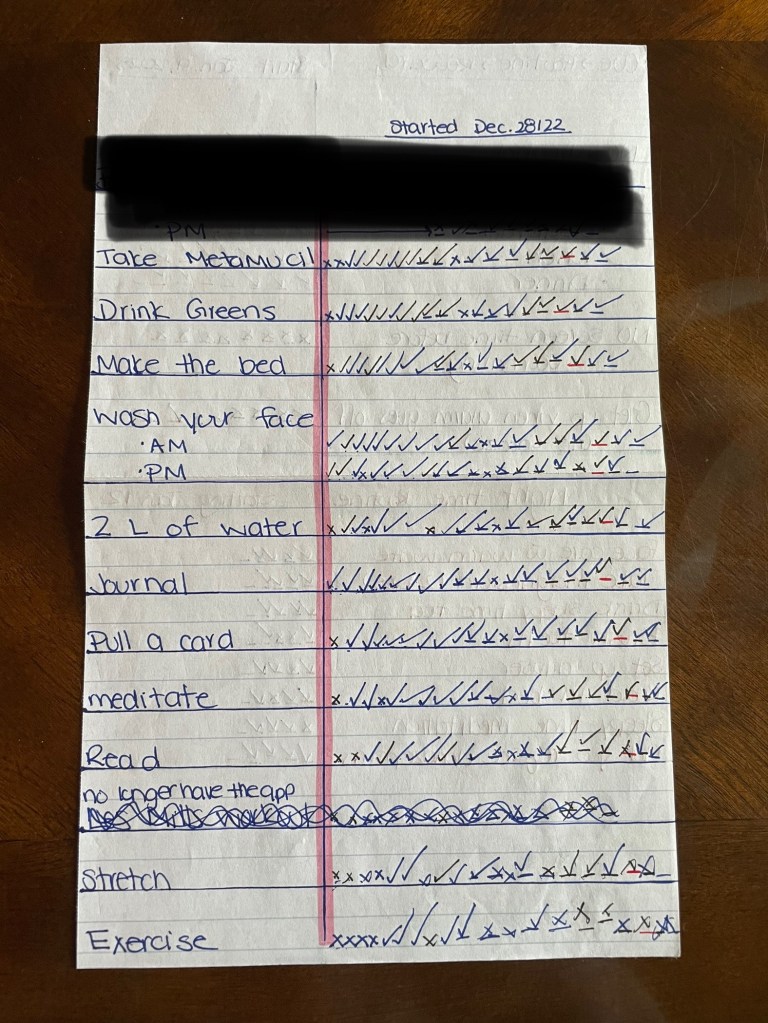 Started Dec. 28/22
·PM
Take Metamucil
Drink Greens
Make the bed
Wash your face
·AM
·PM
2 L of water
Journal
Pull a card
meditate
Read
no longer have the app
Stretch
Exercise